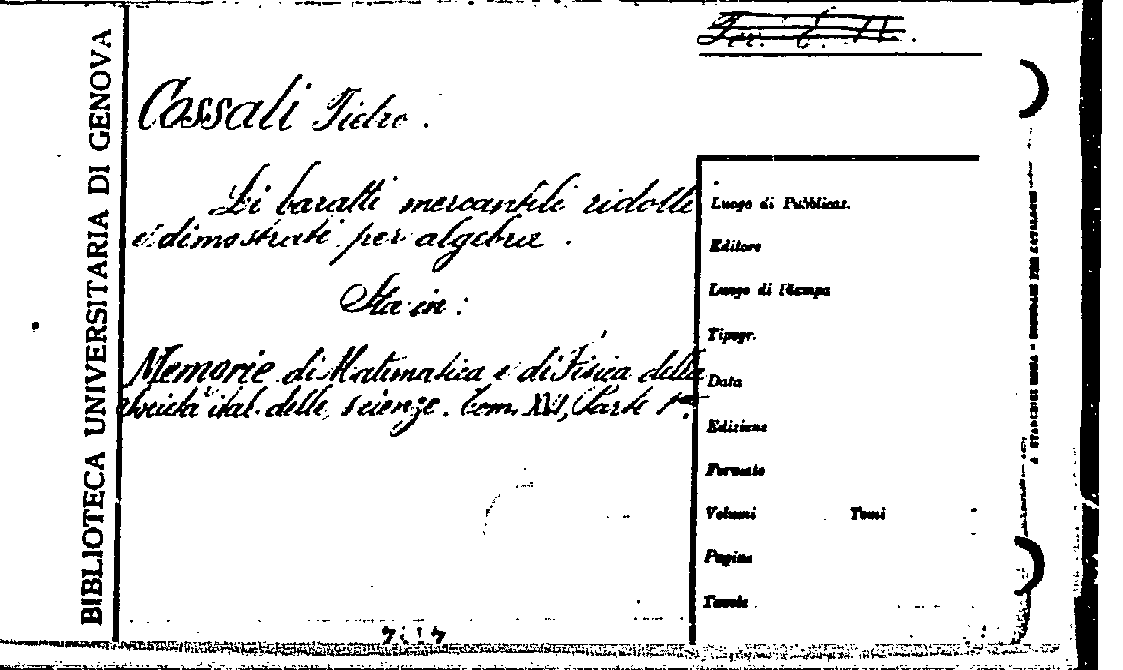 BIBLIOTECA UNIVERSITARIA DI GENOVA
Cossali Pietro.
Di baratti mercantili ridotti
e dimostrati per algebra.
Sta in:
Memorie di Matematica e di Fisica della
Società ital. delle scienze. Tom. XVI, Parte 1ᵐᵃ
Luogo di Pubblicaz.
Editore
Luogo di Stampa
Tipogr.
Data
Edizione
Formato
Volumi Tomi
Pagine
Tavole